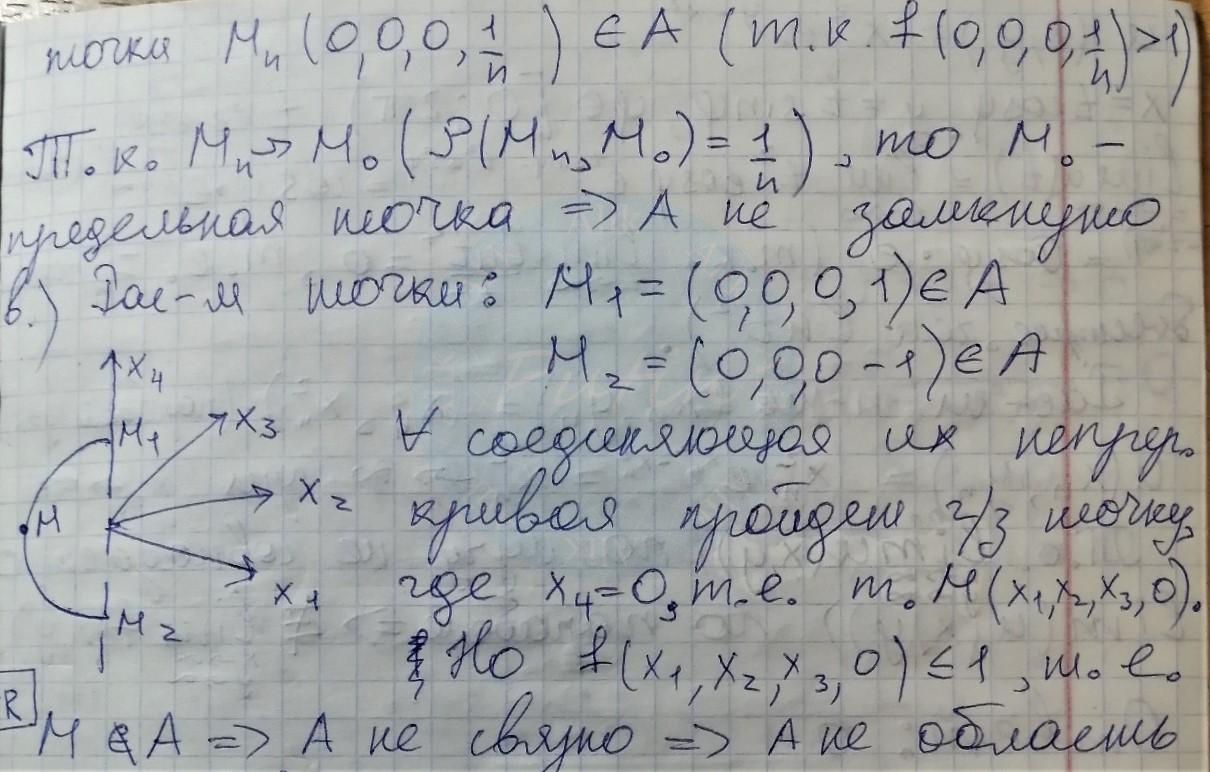 точки Mₙ (0,0,0,1/n) ∈ A (т.к. f(0,0,0,1/n)>1)
Т.к. Mₙ → M₀ (ρ(Mₙ, M₀) = 1/n), то M₀ –
предельная точка => A не замкнуто
в.) Рас-м точки: M₁ = (0,0,0,1) ∈ A
M₂ = (0,0,0 -1) ∈ A
x₄
M₁
x₃
M
x₂
x₁
M₂
∀ соединяющая их непрер.
кривая пройдет ч/з точку,
где x₄=0, т.е. т. M(x₁,x₂,x₃,0).
Но f(x₁,x₂,x₃,0) ≤ 1, т.е.
R
M ∉ A => A не связно => A не область